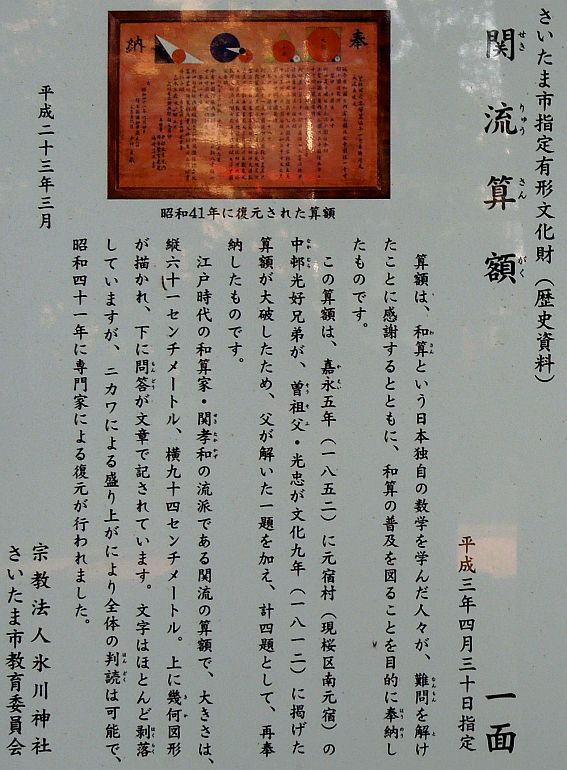 さいたま市指定有形文化財（歴史資料）
関流算額　一面
せきりゅうさんがく
平成三年四月三十日指定
算額は、和算という日本独自の数学を学んだ人々が、難問を解け
たことに感謝するとともに、和算の普及を図ることを目的に奉納し
たものです。
この算額は、嘉永五年（一八五二）に元宿村（現桜区南元宿）の
中邨光好兄弟が、曽祖父・光忠が文化九年（一八一二）に掲げた
算額が大破したため、父が解いた一題を加え、計四題として、再奉
納したものです。
江戸時代の和算家・関孝和の流派である関流の算額で、大きさは、
縦六十一センチメートル、横九十四センチメートル。上に幾何図形
が描かれ、下に問答が文章で記されています。文字はほとんど剥落
していますが、ニカワによる盛り上がにより全体の判読は可能で、
昭和四十一年に専門家による復元が行われました。
奉納
昭和41年に復元された算額
平成二十三年三月
宗教法人氷川神社
さいたま市教育委員会